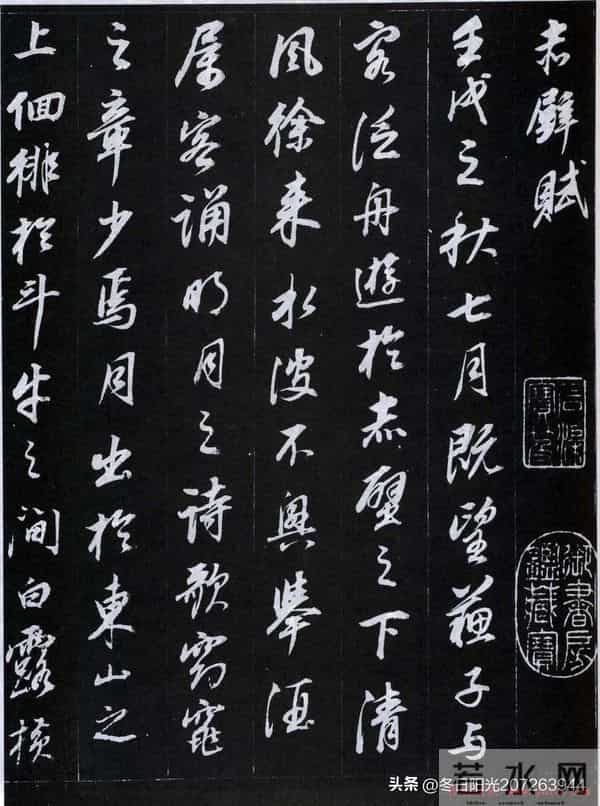 赤壁賦
壬戌之秋七月既望蘇子與
客泛舟遊於赤壁之下清
風徐來水波不興舉酒
屬客誦明月之詩歌窈窕
之章少焉月出於東山之
上佪徘於斗牛之間白露横
石渠寶笈
御書房鑑藏寶
若水网
头条 @冬日阳光207263944